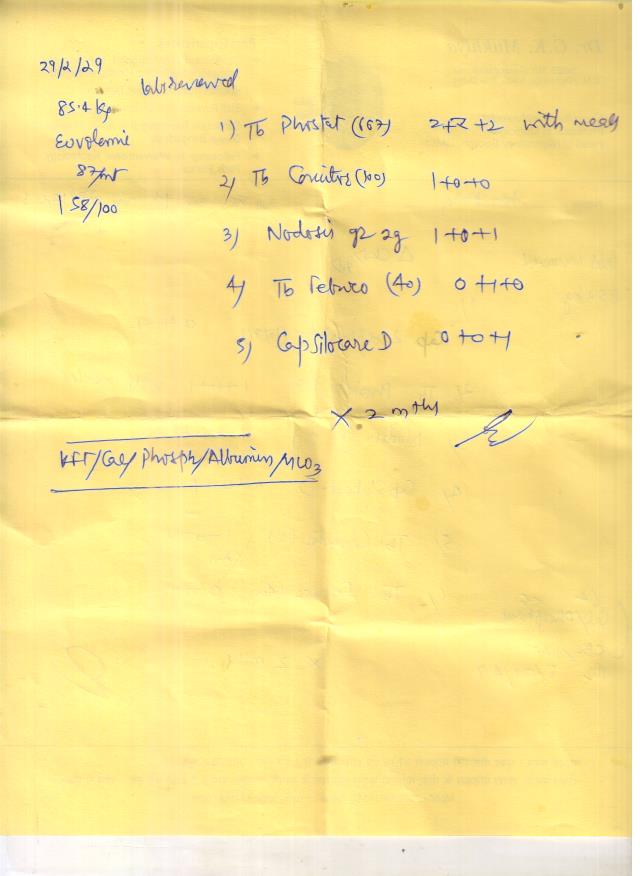 29/2/29
labs reviewed
85.4 kg
Euvolemic
87/mt
158/100
1) Tb Phostat (667) 2+2+2 with meals
2) Tb (100) 1+0+0
3) Nodosis 2g 1+0+1
4) Tb Febuco (40) 0+1+0
5) Cap Silocare D 0+0+1
X 2 mths
KFT/Cal/Phosph/Albumin/HCO3